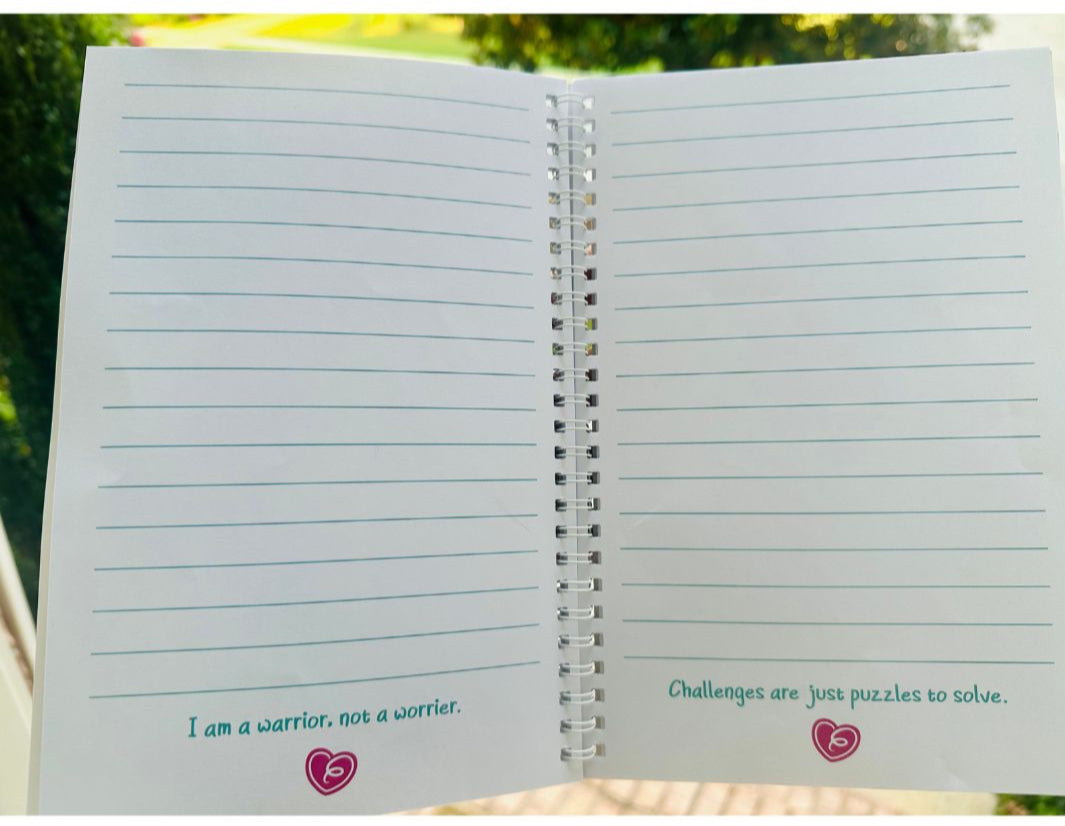 I am a warrior. not a worrier.
Challenges are just puzzles to solve.